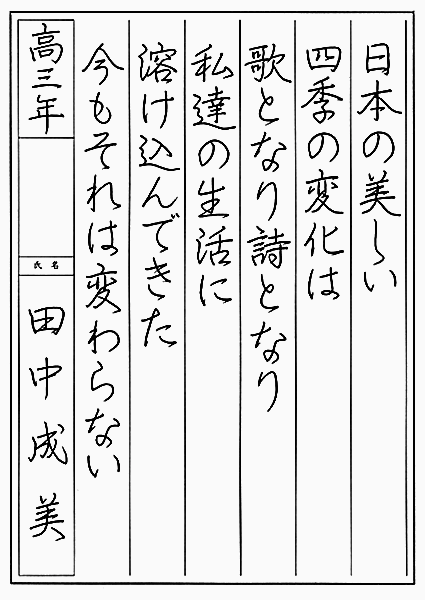 日本の美しい
四季の変化は
歌となり詩となり
私達の生活に
溶け込んできた
今もそれは変わらない
高三年
氏名
田中成美